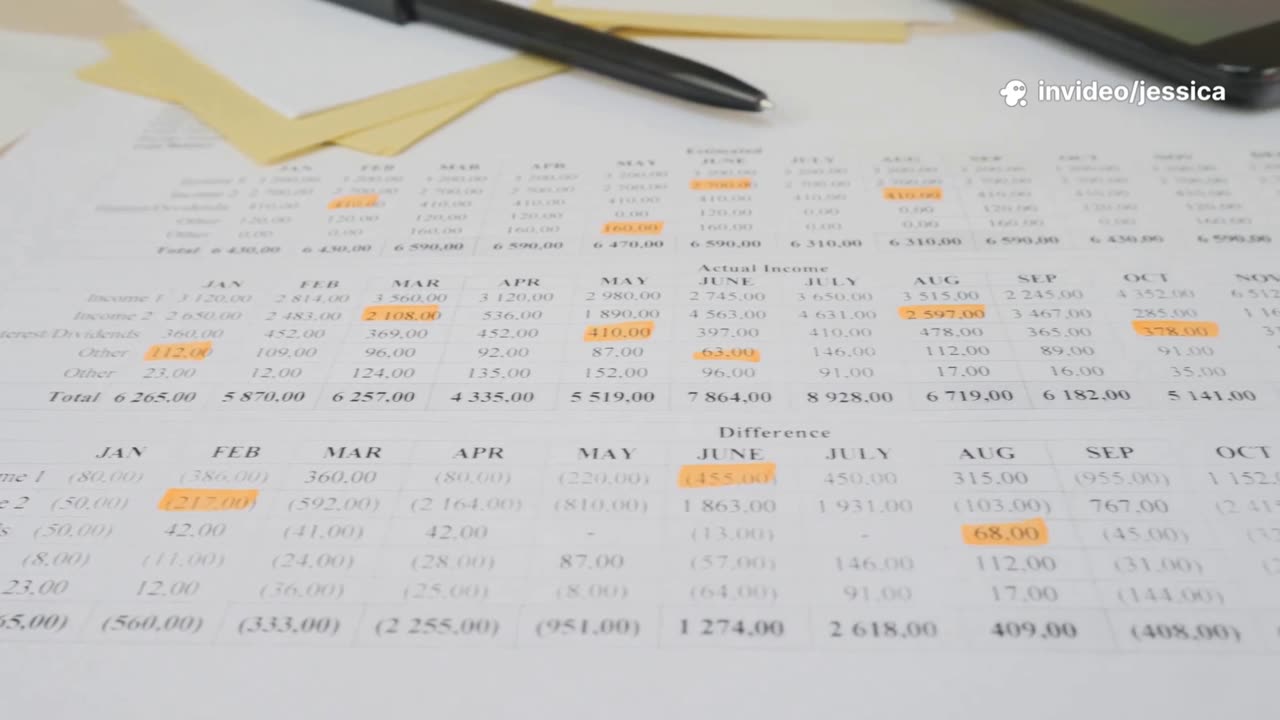 invideo/jessica
Estimated
JAN FEB MAR APR MAY JUNE JULY AUG SEP OCT NOV
2 700,00 2 700,00 2 700,00 2 700,00 2 700,00 2 700,00
410,00 410,00 410,00 410,00 0,00 410,00 410,00 410,00 410,00 410,00
Other 120,00 120,00 120,00 120,00 0,00 120,00 0,00 0,00 120,00 120,00 120,00
Other 0,00 0,00 160,00 160,00 160,00 160,00 0,00 0,00 160,00 0,00 160,00
Total 6 430,00 6 430,00 6 590,00 6 590,00 6 470,00 6 590,00 6 310,00 6 310,00 6 590,00 6 430,00 6 590,00
Actual Income
JAN FEB MAR APR MAY JUNE JULY AUG SEP OCT NOV
Income 1 3 120,00 2 814,00 3 560,00 3 120,00 2 980,00 2 745,00 3 650,00 3 515,00 2 245,00 4 352,00 6 512
Income 2 2 650,00 2 483,00 2 108,00 536,00 1 890,00 4 563,00 4 631,00 2 597,00 3 467,00 285,00 1 16
nterest/Dividends 360,00 452,00 369,00 452,00 410,00 397,00 410,00 478,00 365,00 378,00 3
Other 112,00 109,00 96,00 92,00 87,00 63,00 146,00 112,00 89,00 91,00
Other 23,00 12,00 124,00 135,00 152,00 96,00 91,00 17,00 16,00 35,00
Total 6 265,00 5 870,00 6 257,00 4 335,00 5 519,00 7 864,00 8 928,00 6 719,00 6 182,00 5 141,00
Difference
JAN FEB MAR APR MAY JUNE JULY AUG SEP OCT
me 1 (80,00) (386,00) 360,00 (80,00) (220,00) (455,00) 450,00 315,00 (955,00) 1 152,
e 2 (50,00) (217,00) (592,00) (2 164,00) (810,00) 1 863,00 1 931,00 (103,00) 767,00 (2 41
s (50,00) 42,00 (41,00) 42,00 - (13,00) - 68,00 (45,00)
(8,00) (11,00) (24,00) (28,00) 87,00 (57,00) 146,00 112,00 (31,00)
23,00 12,00 (36,00) (25,00) (8,00) (64,00) 91,00 17,00 (144,00)
65,00) (560,00) (333,00) (2 255,00) (951,00) 1 274,00 2 618,00 409,00 (408,00)